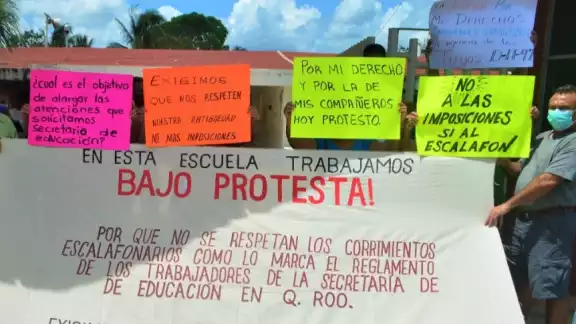 ¿CUAL ES EL OBJETIVO
DE ALARGAR LAS
ATENCIONES QUE
SOLICITAMOS
SECRETARIO DE
EDUCACIÓN?
EXIGIMOS
QUE NOS RESPETEN
NUESTRA ANTIGUEDAD
NO MAS IMPOSICIONES
POR MI DERECHO
Y POR LA DE
MIS COMPAÑEROS
HOY PROTESTO.
MI DERECHO
NO
A LAS
IMPOSICIONES
SI AL
ESCALAFON!
EN ESTA ESCUELA TRABAJAMOS
BAJO PROTESTA!
POR QUE NO SE RESPETAN LOS CORRIMIENTOS
ESCALAFONARIOS COMO LO MARCA EL REGLAMENTO
DE LOS TRABAJADORES DE LA SECRETARÍA DE
DE EDUCACIÓN EN Q. ROO.